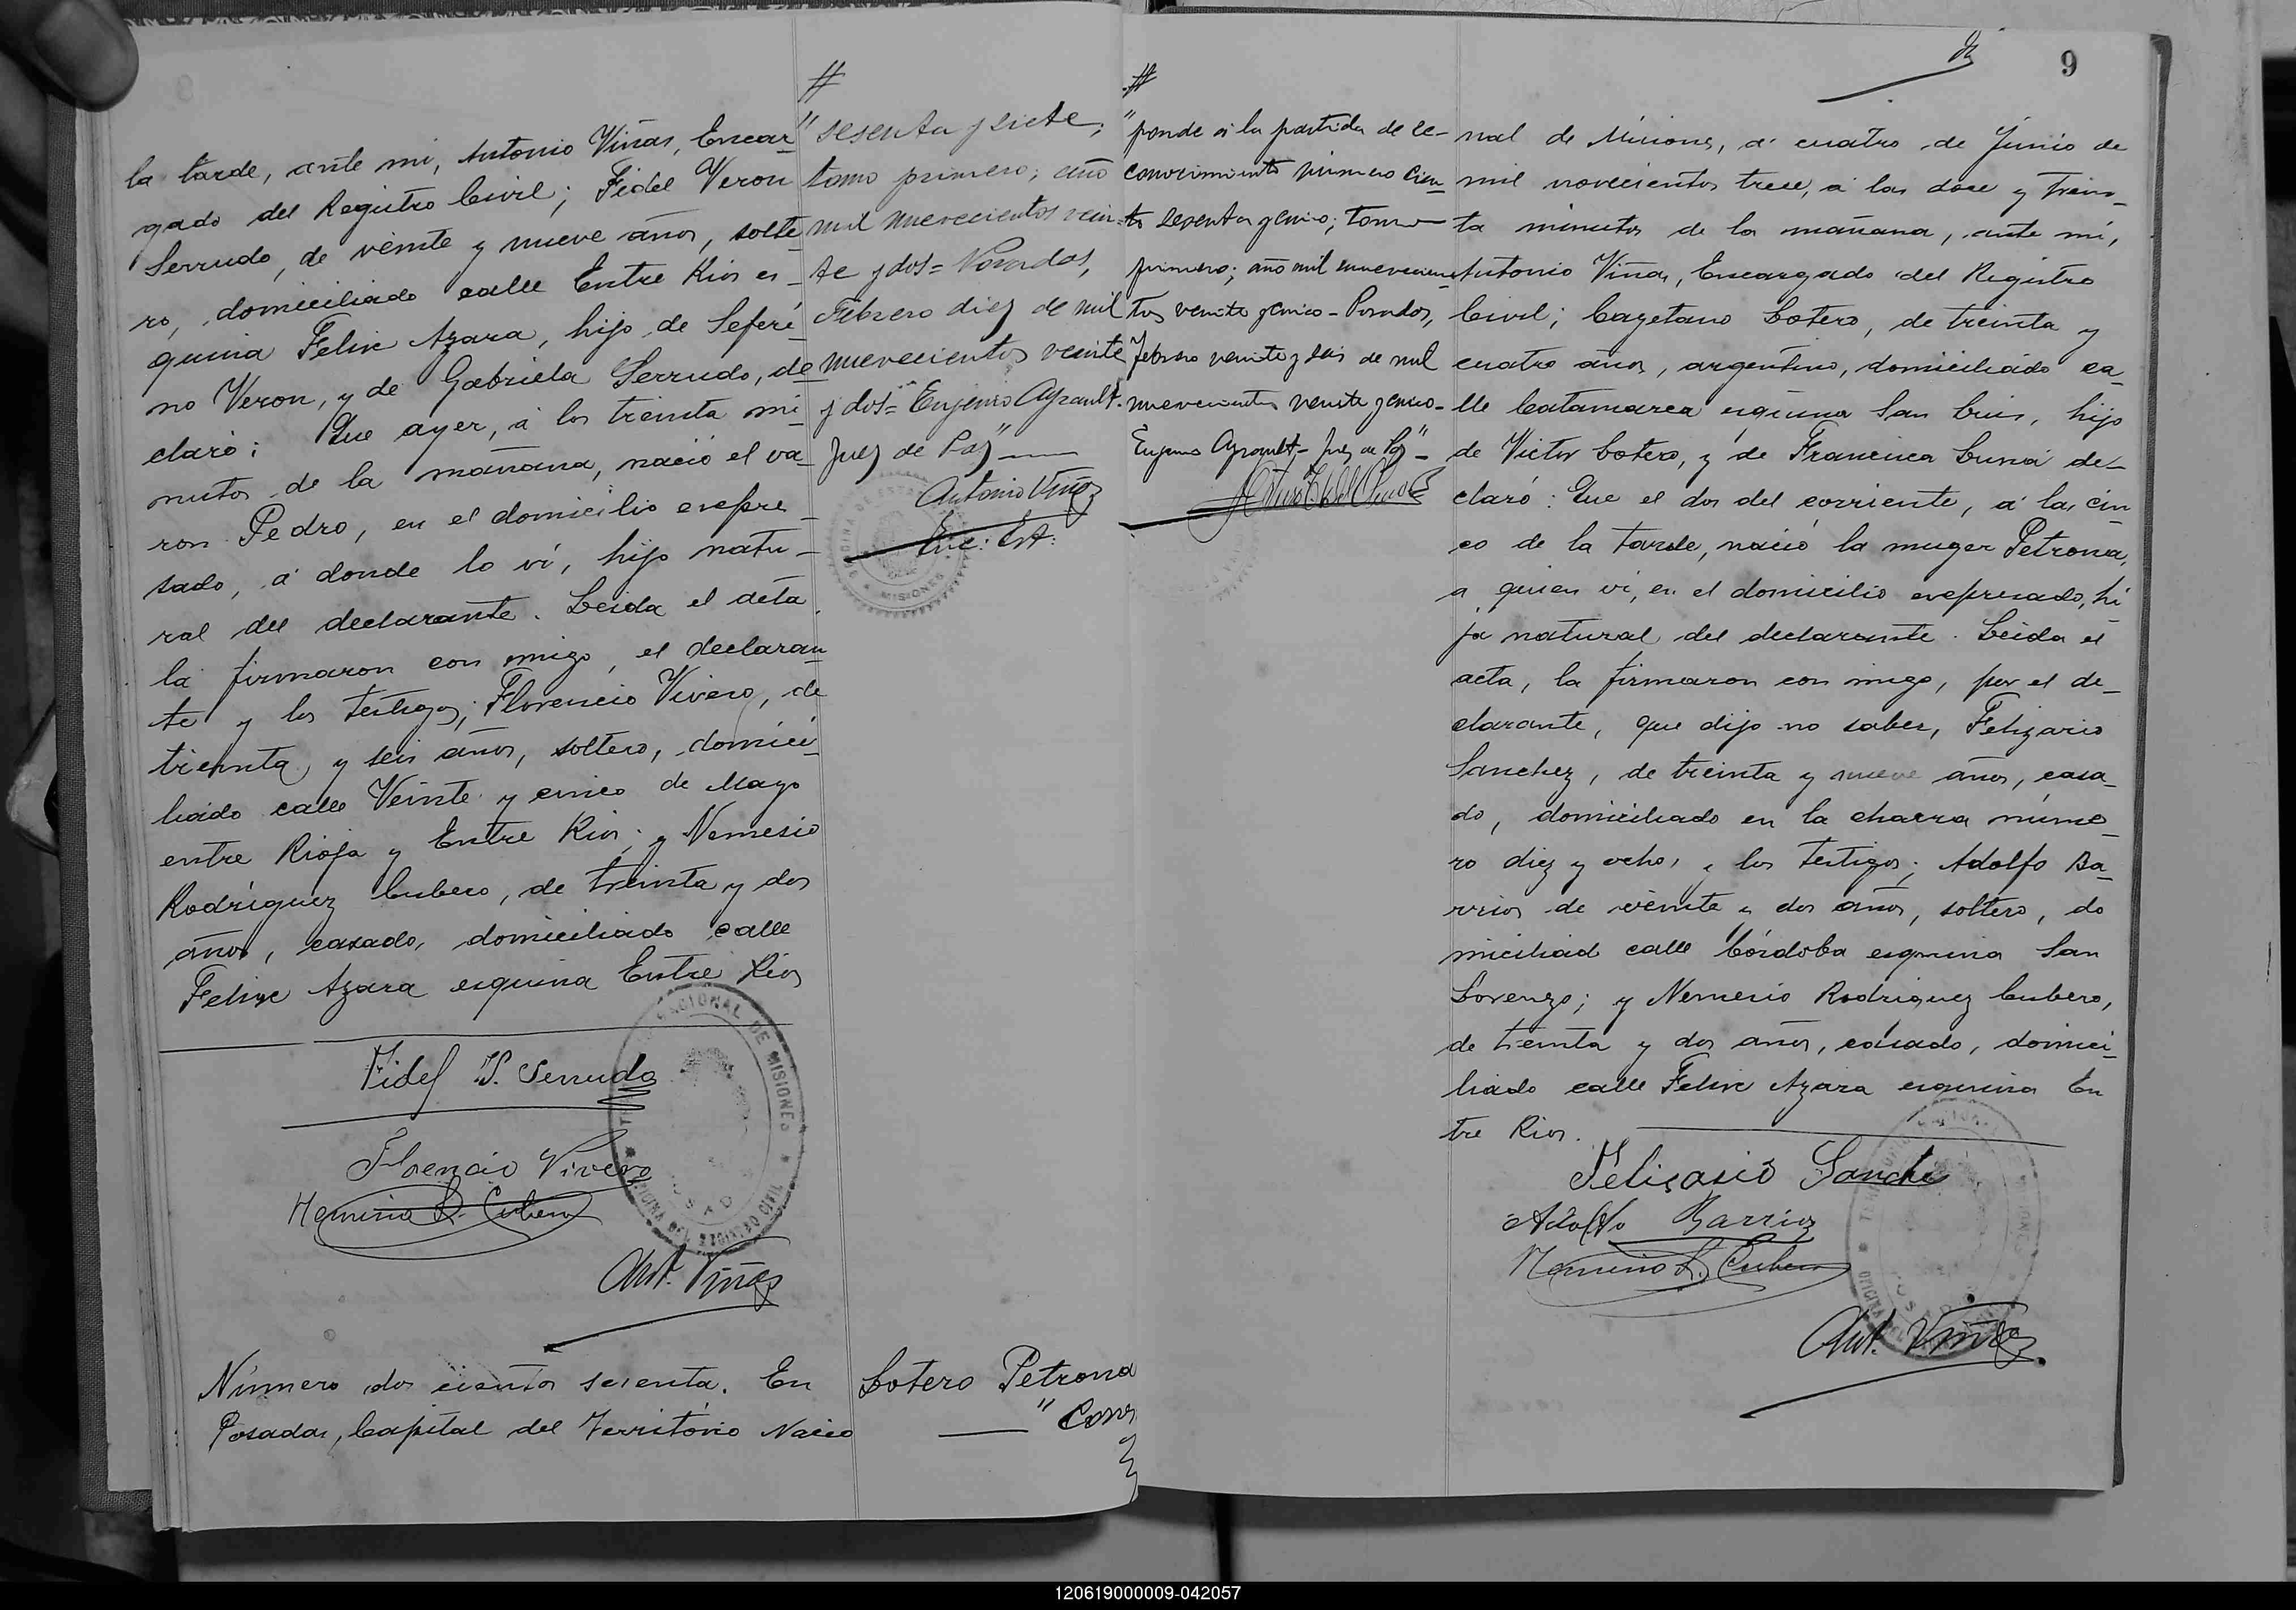 la tarde, ante mi, Antonio Viñas, Encar-
gado del Registro Civil; Fidel Veron
Serrudo, de veinte y nueve años, solte
ro, domiciliado calle Entre Rios es-
quina Felix Azara, hijo de Seferi
no Veron, y de Gabriela Serrudo, de
claró: Que ayer, á los treinta mi
nutos de la mañana, nació el va-
ron Pedro, en el domicilio expre-
sado, á donde lo ví, hijo natu-
ral del declarante. Leida el acta
la firmaron con migo, el declaran
te y los testigos; Florencio Vivero, de
trienta y seis años, soltero, domici-
liado calle Veinte y cinco de Mayo
entre Rioja y Entre Rios; y Nemesio
Rodríguez Cubero, de treinta y dos
años, casado, domiciliado calle
Felix Azara esquina Entre Rios
Fidel V. Serrudo
Florencio Vivero
Nemesio R. Cubero
Ant. Viñas
Número dos cientos sesenta. En
Posadas, Capital del Territorio Nacio
#
"sesenta y siete;
tomo primero; año
mil nuevecientos vein-
te y dos = Posadas,
Febrero diez de mil
nuevecientos veinte
y dos = Eugenio Ayrault.
Juez de Paz"
Antonio Viñas
Enc: Est:
MISIONES
Sotero Petrona
#
"ponde á la partida de re-
conocimiento número cien-
to sesenta y cinco; tomo
primero; año mil nuevecien-
tos veinte y cinco - Posadas,
Febrero veinte y seis de mil
nuevecientos veinte y cinco-
Eugenio Ayrault - Juez de Paz"-
9
nal de Misiones, á cuatro de Junio de
mil novecientos trece, á las doce y trein-
ta minutos de la mañana, ante mí,
Antonio Viñas, Encargado del Registro
Civil; Cayetano Sotero, de treinta y
cuatro años, argentino, domiciliado ca-
lle Catamarca esquina San Luis, hijo
de Victor Sotero, y de Francisca Luna de-
claró: Que el dos del corriente, á las cin
co de la tarde, nació la muger Petrona,
a quien ví, en el domicilio expresado, hi
ja natural del declarante. Leida el
acta, la firmaron con migo, por el de-
clarante, que dijo no saber, Felizario
Sanchez, de treinta y nueve años, casa-
do, domiciliado en la chacra núme-
ro diez y ocho, y los testigos; Adolfo Ba-
rrios de veinte y dos años, soltero, do
miciliad calle Córdoba esquina San
Lorenzo; y Nemesio Rodriguez Cubero,
de treinta y dos años, casado, domici-
liado calle Felix Azara esquina En
tre Rios.
Felisario Sanche
Adolfo Barrios
Nemesio R. Cubero
Ant. Viñas
120619000009-042057